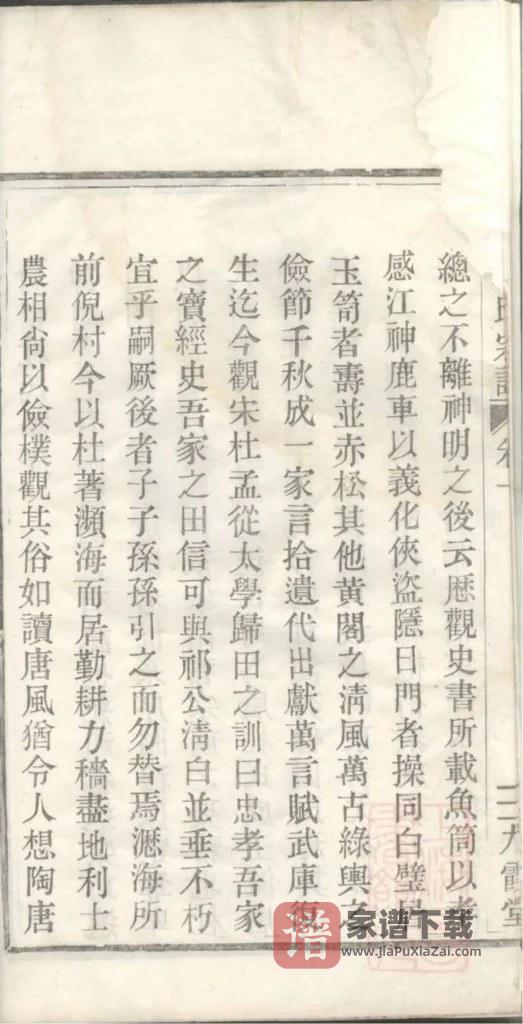 氏宗譜 卷一 二 九霞堂
總之不離神明之後云歷觀史書所載魚筒以孝
感江神鹿車以義化俠盜隱日門者操同白璧居
玉笥者壽並赤松其他黃閣之淸風萬古綠輿之
儉節千秋成一家言拾遺代出獻萬言賦武庫復
生迄今觀宋杜孟從太學歸田之訓曰忠孝吾家
之寶經史吾家之田信可與祁公淸白並垂不朽
宜乎嗣厥後者子子孫孫引之而勿替焉瀝海所
前倪村今以杜著瀕海而居勤耕力穡盡地利士
農相尙以儉樸觀其俗如讀唐風猶令人想陶唐
譜 家谱下载
www.jiaPuXiaZai.com